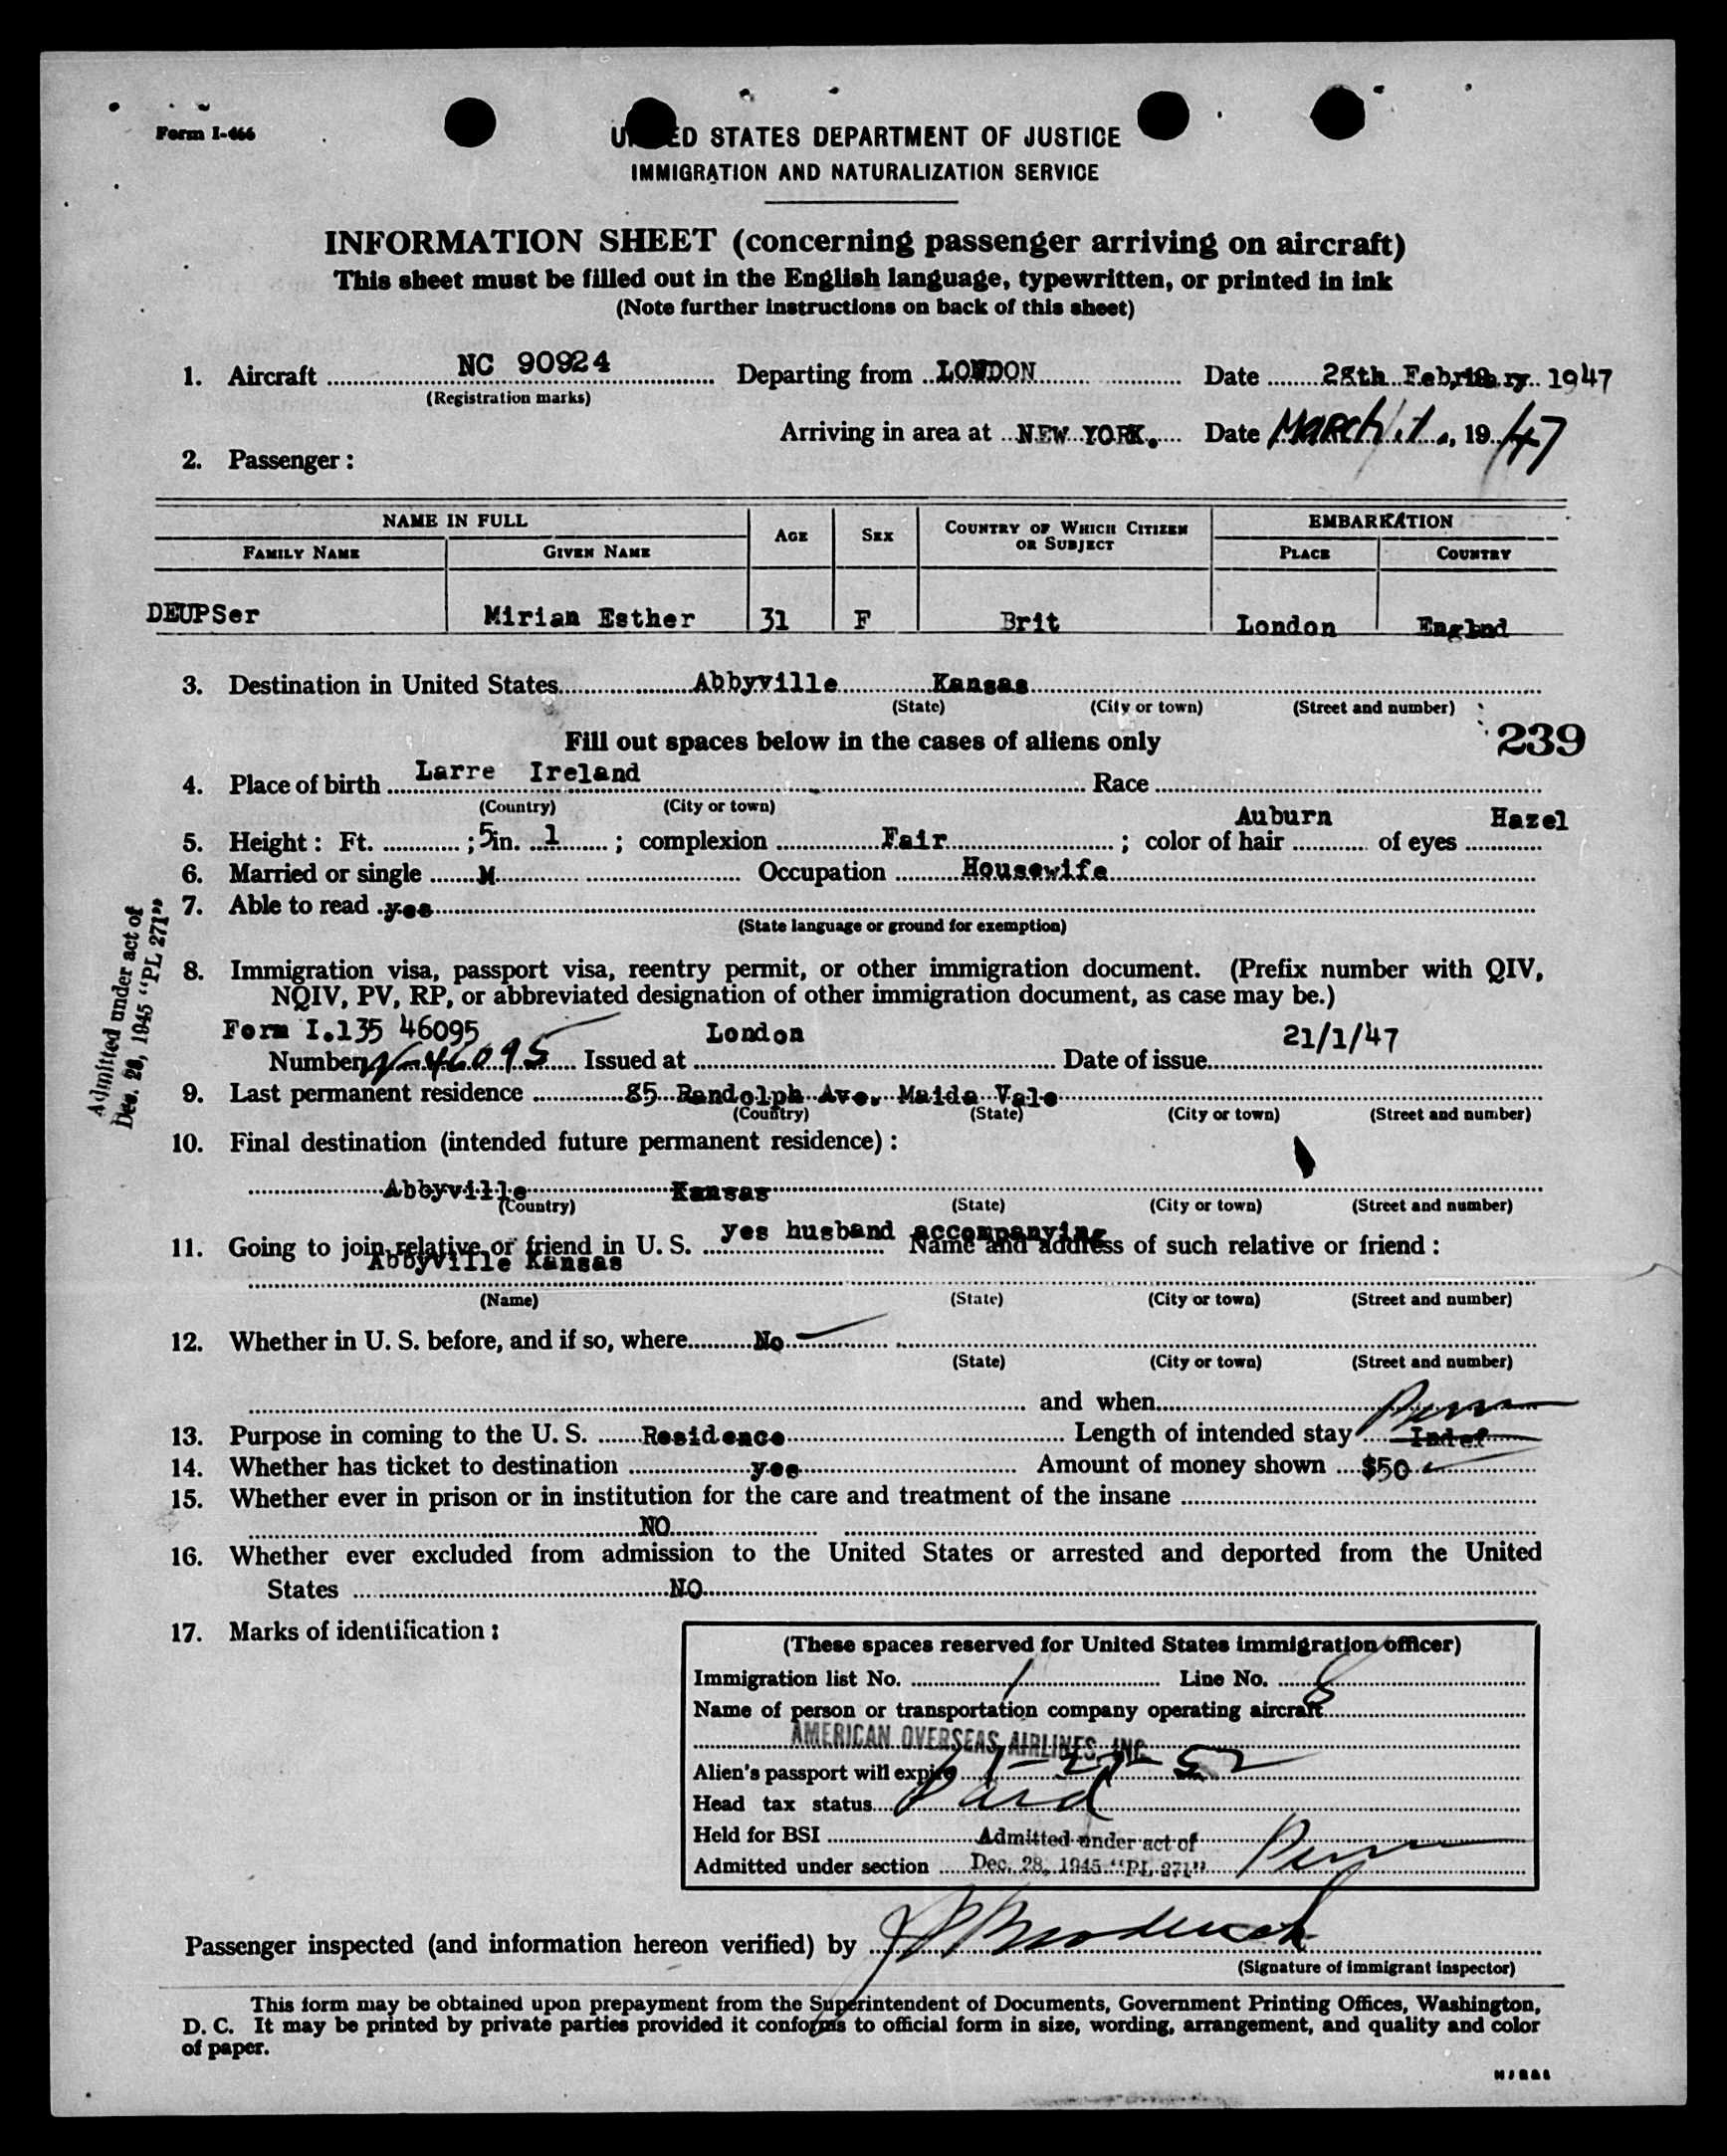 Form I-466
UNITED STATES DEPARTMENT OF JUSTICE
IMMIGRATION AND NATURALIZATION SERVICE
INFORMATION SHEET (concerning passenger arriving on aircraft)
This sheet must be filled out in the English language, typewritten, or printed in ink
(Note further instructions on back of this sheet)
1. Aircraft NC 90924 Departing from LONDON Date 28th February 1947
(Registration marks)
Arriving in area at NEW YORK. Date March 1, 19 47
2. Passenger:
NAME IN FULL AGE SEX COUNTRY OF WHICH CITIZEN OR SUBJECT EMBARKATION
FAMILY NAME GIVEN NAME PLACE COUNTRY
DEUPSer Mirian Esther 31 F Brit London Englnd
3. Destination in United States Abbyville Kansas
(State) (City or town) (Street and number)
239
Fill out spaces below in the cases of aliens only
4. Place of birth Larre Ireland Race
(Country) (City or town)
5. Height: Ft. ; 5 in. 1 ; complexion Fair ; color of hair Auburn of eyes Hazel
6. Married or single M Occupation Housewife
7. Able to read yes
(State language or ground for exemption)
Admitted under act of
Dec. 28, 1945 "PL 271"
8. Immigration visa, passport visa, reentry permit, or other immigration document. (Prefix number with QIV,
NQIV, PV, RP, or abbreviated designation of other immigration document, as case may be.)
Form I.135 46095 London 21/1/47
Number 46095 Issued at Date of issue
9. Last permanent residence 85 Randolph Ave. Maida Vale
(Country) (State) (City or town) (Street and number)
10. Final destination (intended future permanent residence):
Abbyville Kansas
(Country) (State) (City or town) (Street and number)
11. Going to join relative or friend in U. S. yes husband accompanying Name and address of such relative or friend:
Abbyville Kansas
(Name) (State) (City or town) (Street and number)
12. Whether in U. S. before, and if so, where No
(State) (City or town) (Street and number)
and when
13. Purpose in coming to the U. S. Residence Length of intended stay Indef Perm
14. Whether has ticket to destination yes Amount of money shown $50
15. Whether ever in prison or in institution for the care and treatment of the insane
NO
16. Whether ever excluded from admission to the United States or arrested and deported from the United
States NO
17. Marks of identification:
(These spaces reserved for United States immigration officer)
Immigration list No. 1 Line No. 8
Name of person or transportation company operating aircraft
AMERICAN OVERSEAS AIRLINES, INC
Alien's passport will expire
Head tax status Paid
Held for BSI Admitted under act of
Admitted under section Dec. 28, 1945 "PL 271" Perm
Passenger inspected (and information hereon verified) by
(Signature of immigrant inspector)
This form may be obtained upon prepayment from the Superintendent of Documents, Government Printing Offices, Washington,
D. C. It may be printed by private parties provided it conforms to official form in size, wording, arrangement, and quality and color
of paper.